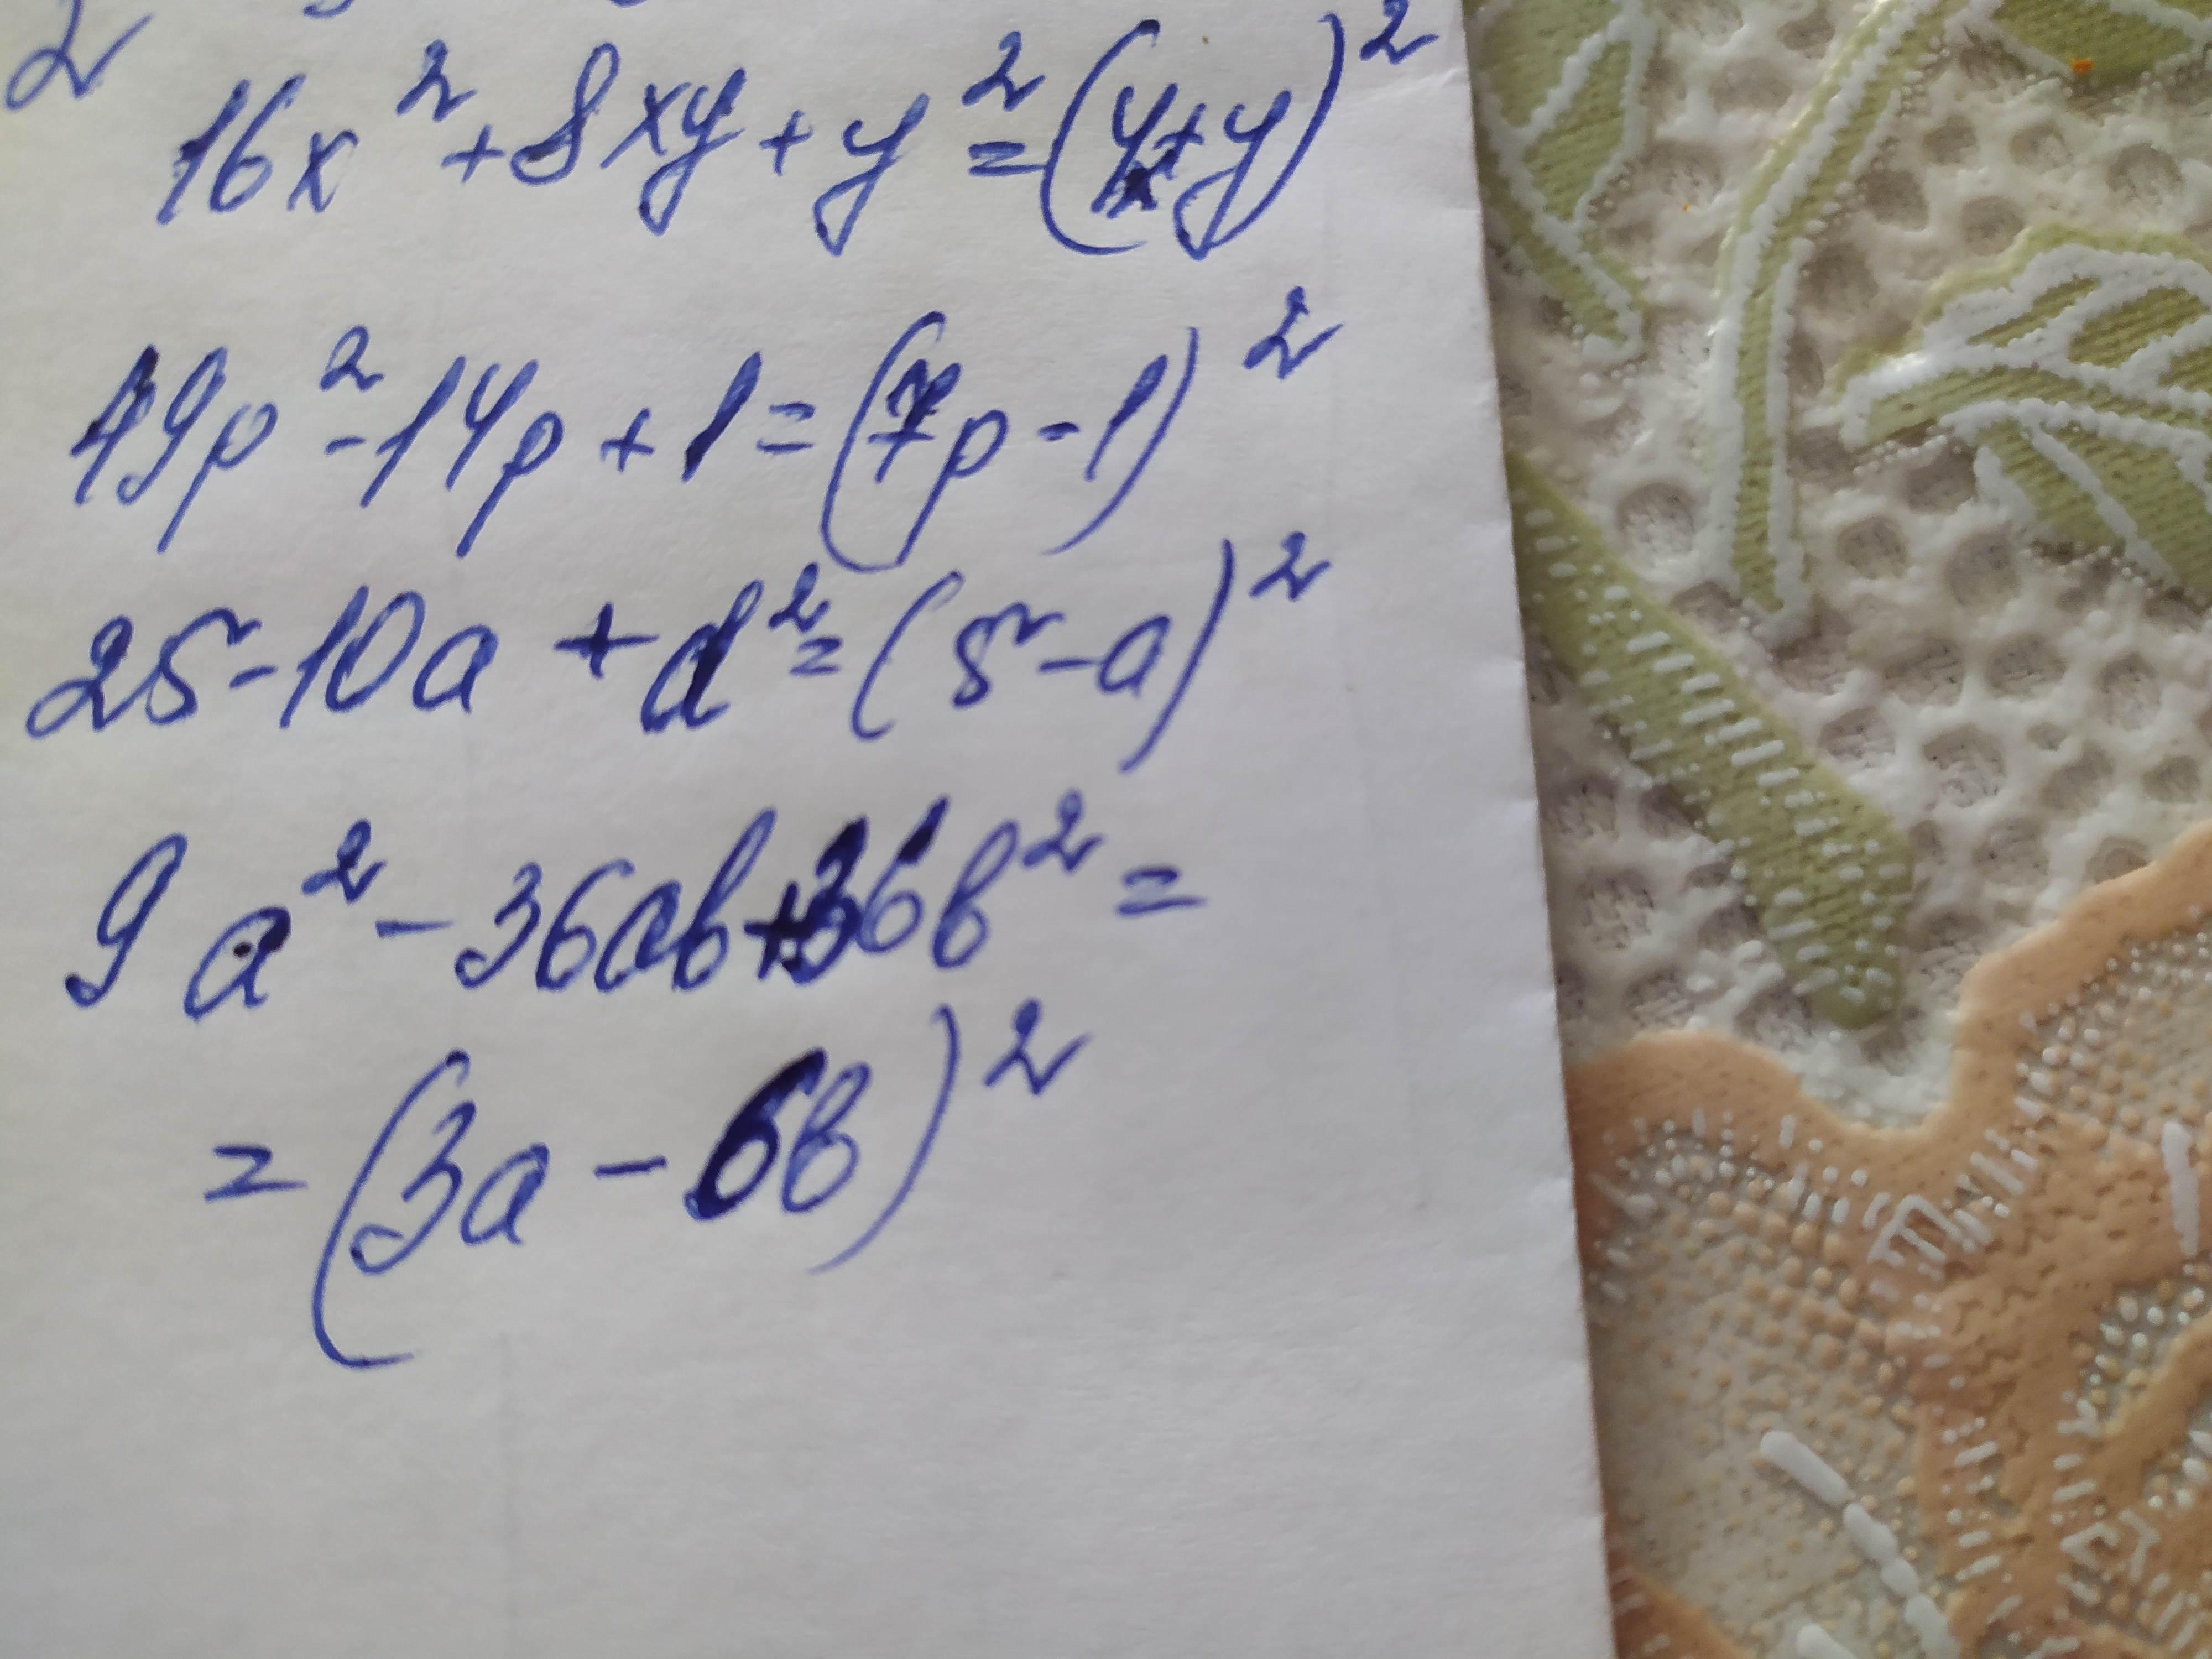 2
16x² + 8xy + y² = (4x+y)²
49p² - 14p + 1 = (7p - 1)²
25 - 10a + a² = (5 - a)²
9a² - 36ab + 36b² =
= (3a - 6b)²